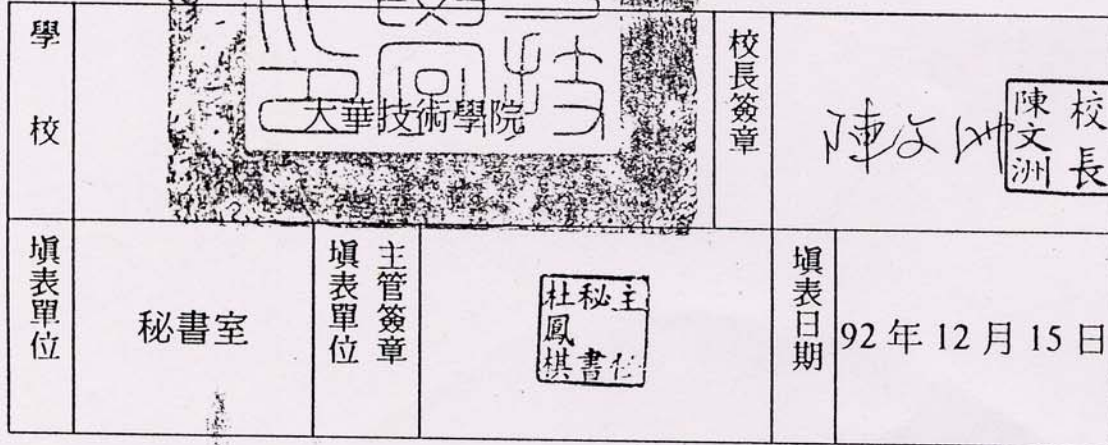 學校
大華技術學院
校長簽章
陳文洲
校長
陳文洲
填表單位
秘書室
填表單位
主管簽章
主任
秘書
杜鳳棋
填表日期
92年12月15日